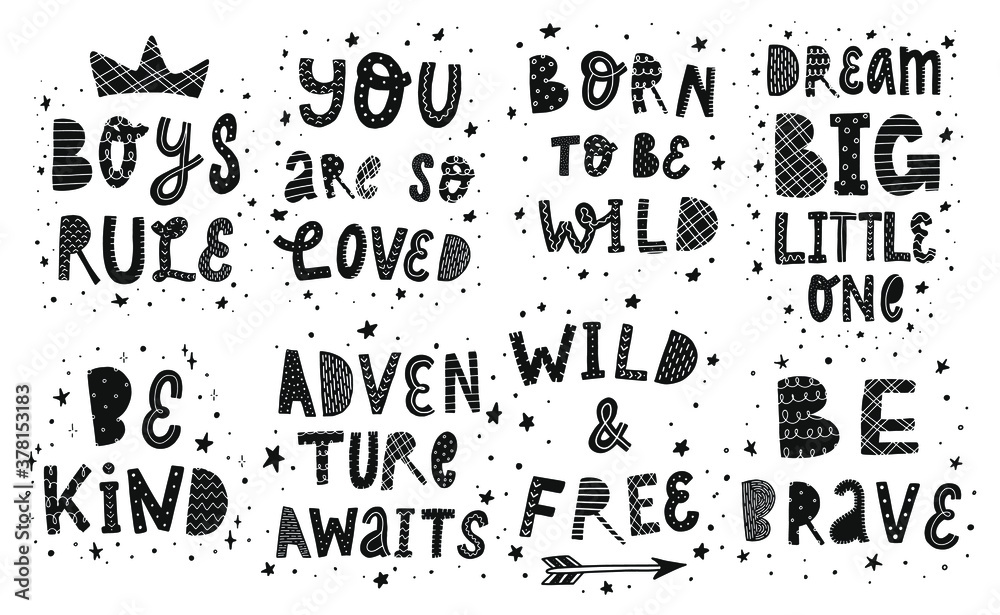 BOYS
RULE
YOU
are so
LOVED
BORN
TO BE
WILD
DREam
BIG
LITTLE
ONE
BE
KiND
ADVEN
TURE
AWaiTS
WILD
&
FREE
BE
BRAVE
Adobe Stock | #378153183